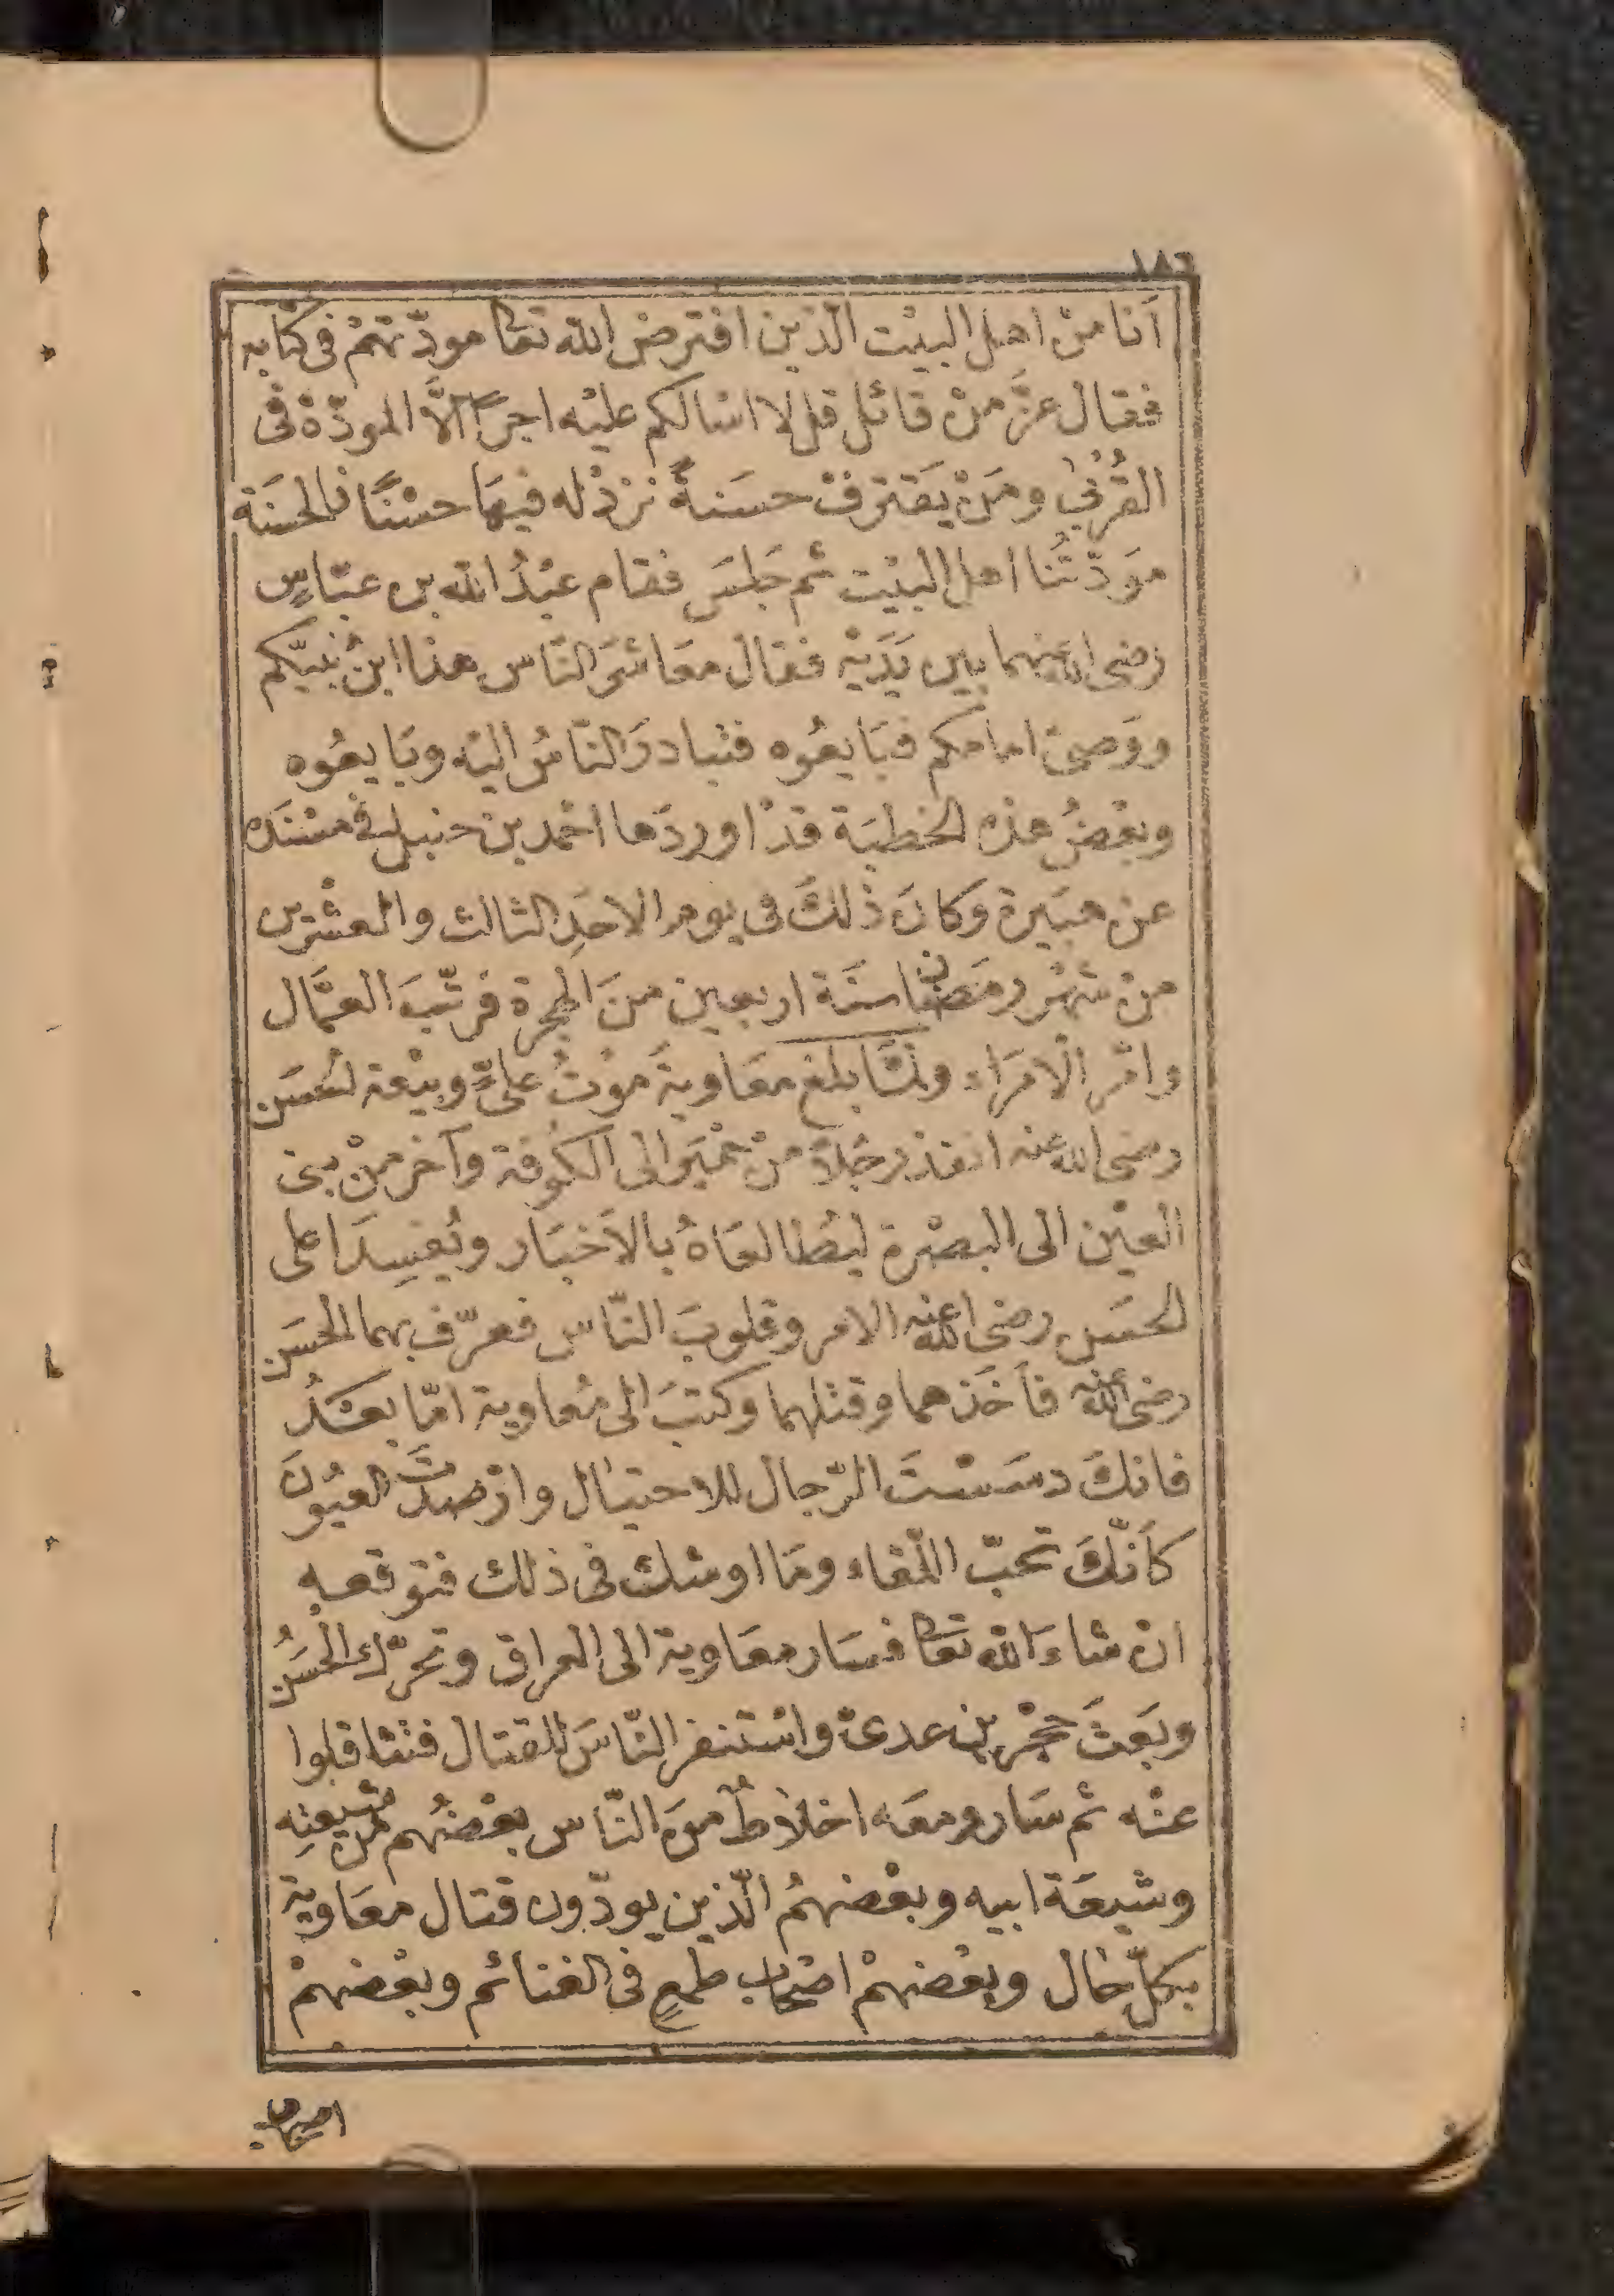 ١٨٦
أنا من اهل البيت الذين افترض الله تعا مودّتهم فى كتابه
فقال عزّ من قائل قل لا اسالكم عليه اجرًا الّا المودّة فى
القُرْبٰى ومَنْ يَقترفْ حسَنةً نزدْ له فيهَا حسْنًا فالحسَنة
مَوَدّتُنا اهل البيْت ثم جَلسَ فقام عبْدُ الله بن عبّاسٍ
رضى الله عنهما بين يَدَيْه فقال معَاشرَ النّاس هذا ابنُ نبيّكم
ووَصىّ امامكم فبَايعُوه فتبادرَ النّاسُ اليْه وبَايعُوه
وبعْضُ هذه الخطبَة قدْ اوردَها احْمد بن حنبل فى مسْنَده
عن هبَيرة وكانَ ذٰلكَ فى يوم الاحَدِ الثالث والعشْرين
منْ شهْر رمَضان سنَة اربعين منَ الهجرة فرتّبَ العمَّال
وامّر الْامَراء ولمّا بلغ معَاويةَ موْتُ علىّ وبيْعة الحسَن
رضى الله عنه انفذ رجُلاً منْ حمْيَر الى الكوفة وآخر منْ بنى
العيْن الى البصْرة ليُطالعَاهُ بالاَخبَار ويُفسِدَا على
الحسَن رضى الله عنه الامر وقلوبَ النّاس فعرّف بهما الحسَن
رضى الله عنه فأخَذهما وقتلهما وكتبَ الى مُعاوية امّا بعْدُ
فانكَ دسَسْتَ الرّجال للاحتيال وارْصدتَ العيُونَ
كأنّكَ تحبّ اللّقاء ومَا اوشك فى ذلك فتوقعه
ان شاءَ الله تعَا فسَار معَاوية الى العراق وتحرّك الحسَنُ
وبَعثَ حجْر بن عدىّ واسْتنفر النّاسَ للقتال فتثاقلوا
عنْه ثم سَار ومعَه اخلاطٌ منَ النّاس بعْضُهم منْ شيعتِه
وشيعَة ابيه وبعْضهمُ الّذين يودّون قتال معَاوية
بكلّ حَال وبعْضهمْ اصْحاب طمعٍ فى الغنائم وبعْضهمْ
اصحاب